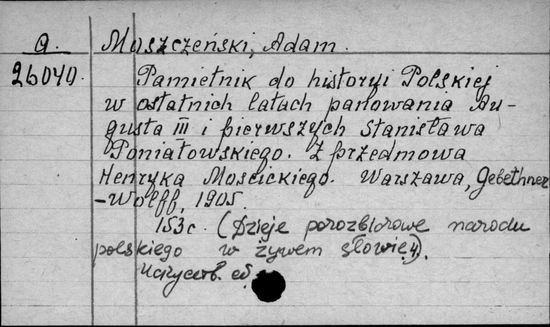 a. Moszczeński, Adam.
26040. Pamietnik do historyi Polskiej
w ostatnich latach panowania Au-
gusta III i pierwszych Stanisława
Poniatowskiego. Z przedmowa
Henryka Mościckiego. Warszawa, Gebethner
-Wolff, 1905.
153c. (Dzieje porozbiorowe narodu
polskiego w żywem słowie,